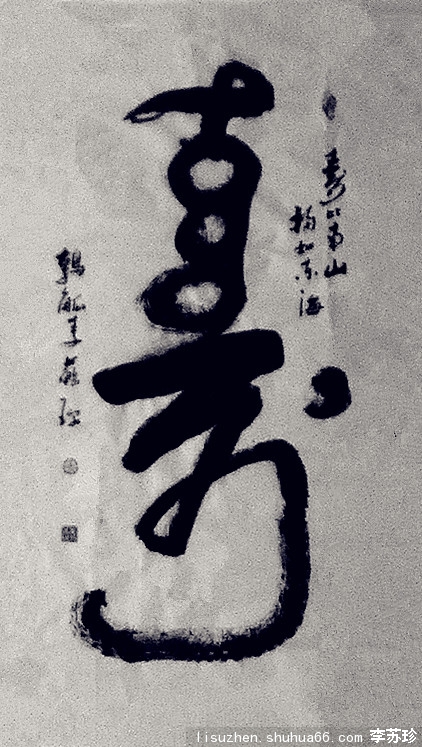 壽比南山
福如东海
壽
李蘇珍
lisuzhen.shuhua66.com 李苏珍